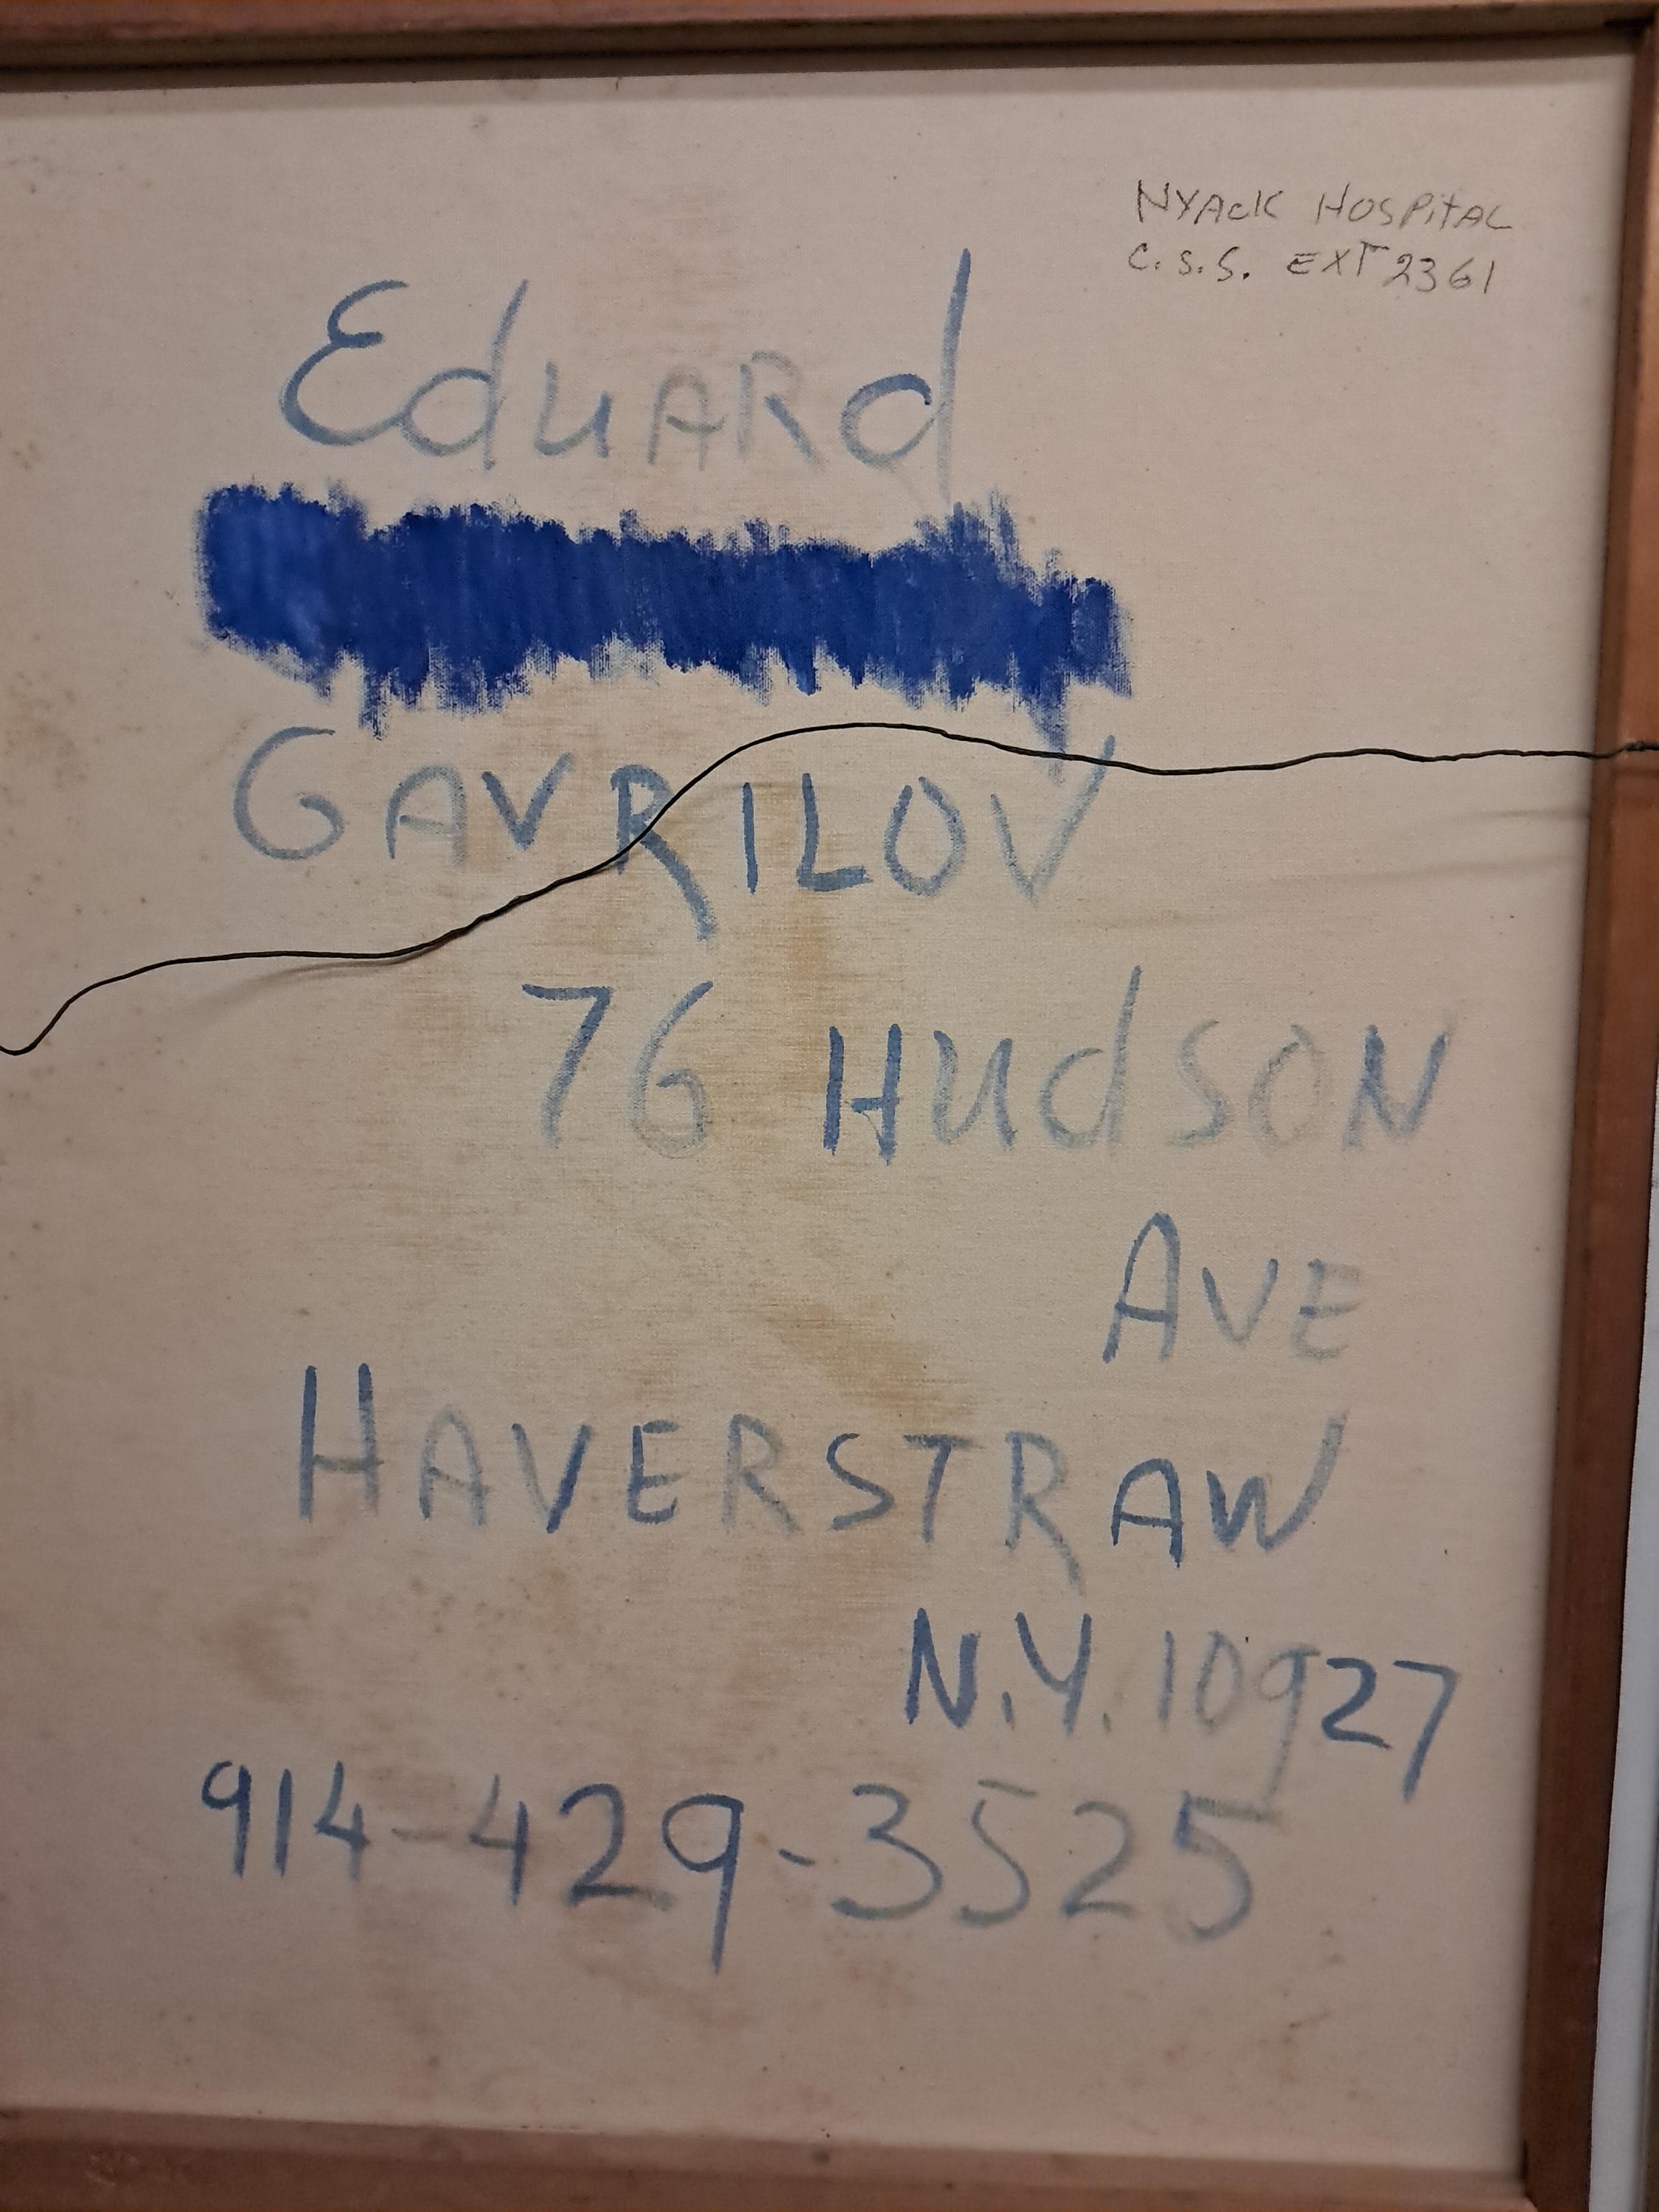 NYAcK HOSPitAL
C.S.S. EXT 2361
EduARd
GAVRILOV
76 HudSON
AVE
HAVERSTRAW
N.Y. 10927
914-429-3525